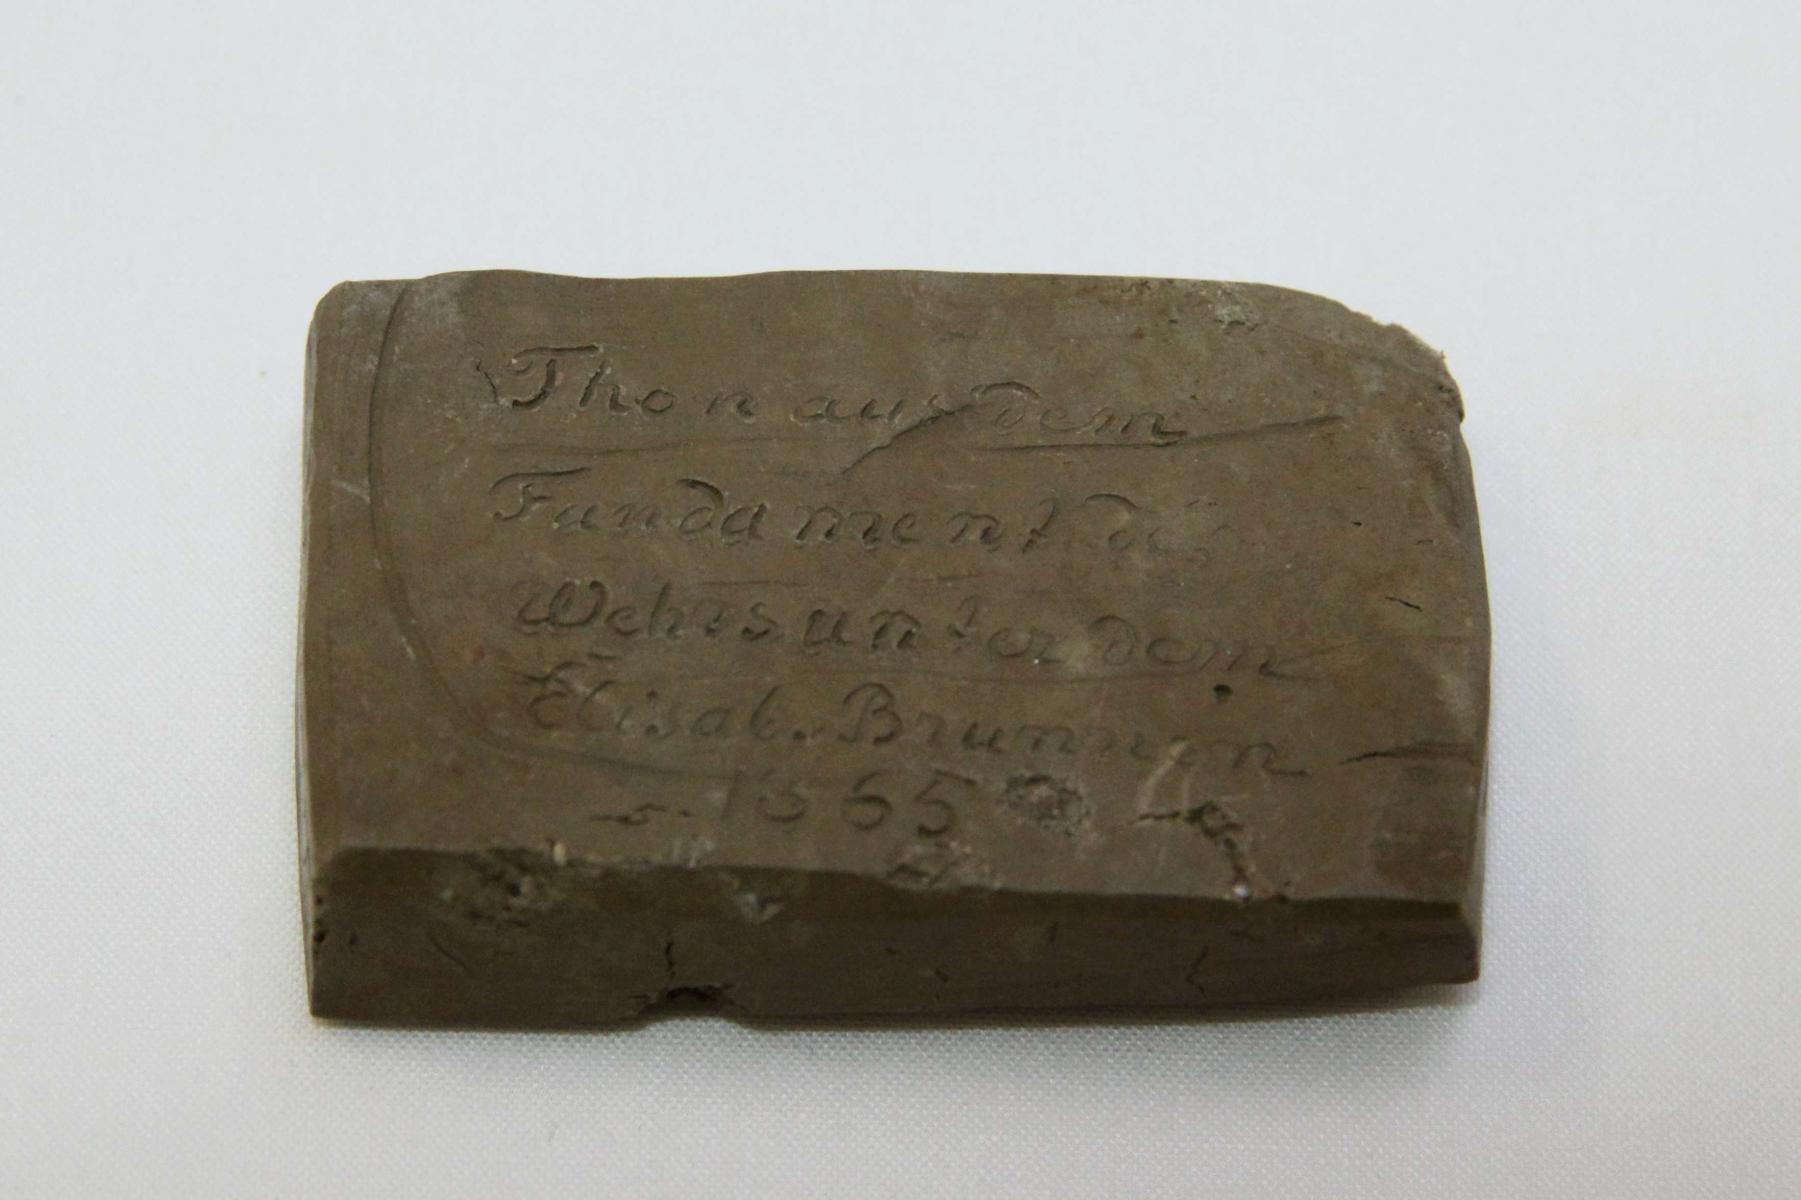 Thon aus dem
Fundament des
Wehrs unter dem
Elisab. Brunnen
1865